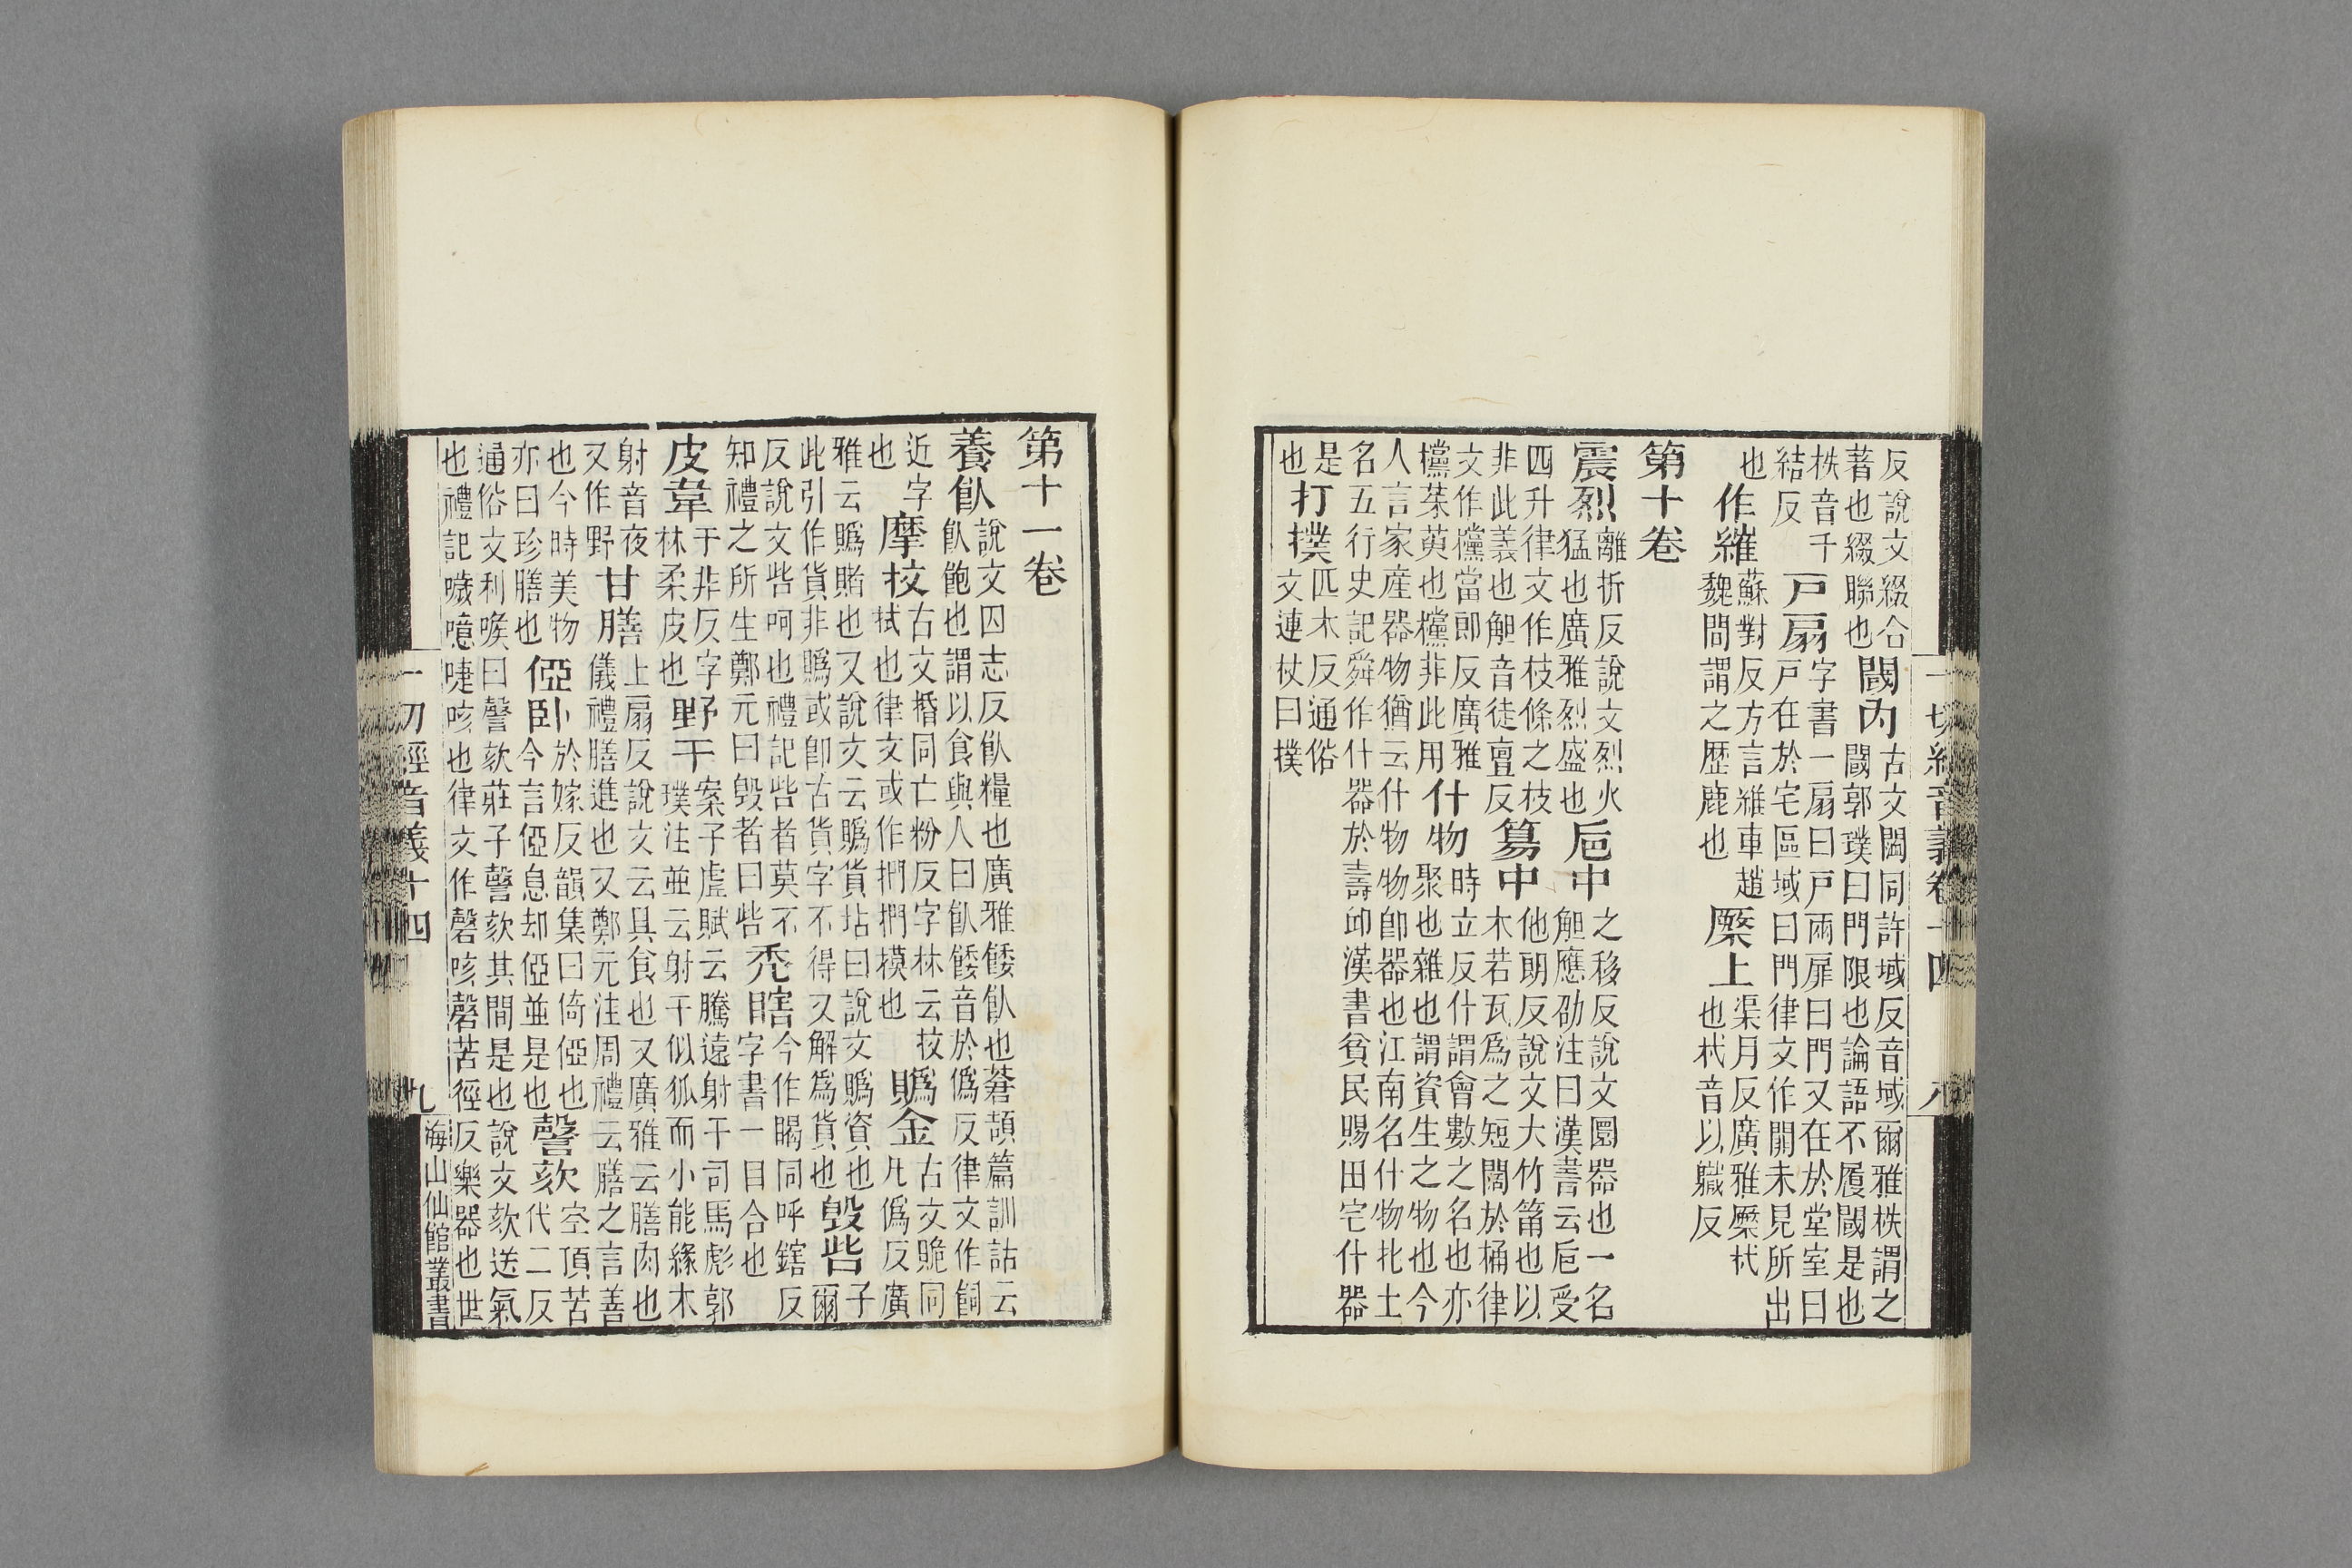 一切經音義卷十四 八
反說文綴合
著也綴聯也
閾内
古文閾同許域反音域爾雅柣謂之
閾郭璞曰門限也論語不履閾是也
柣音千
結反
戸扇
字書一扇曰戸兩扉曰門又在於堂室曰
戸在於宅區域曰門律文作閞未見所出
也
作維
蘇對反方言維車趙
魏間謂之歷鹿也
橜上
渠月反廣雅橜杙
也杙音以軄反
第十卷
震烈
離折反說文烈火
猛也廣雅烈盛也
巵中
之移反說文圜器也一名
觛應劭注曰漢書云巵受
四升律文作枝條之枝
非此義也觛音徒亶反
簜中
他朗反說文大竹筩也以
木若瓦爲之短闊於桶律
文作欓當郎反廣雅
欓茱萸也欓非此用
什物
時立反什謂會數之名也亦
聚也雜也謂資生之物也今
人言家産器物猶云什物物即器也江南名什物北土
名五行史記舜作什器於壽邱漢書貧民賜田宅什器
是
也
打撲
匹木反通俗
文連杖曰撲
第十一卷
養飤
說文囚志反飤糧也廣雅餧飤也蒼頡篇訓詁云
飤飽也謂以食與人曰飤餧音於僞反律文作飼
近字
也
摩抆
古文㨉同亡粉反字林云抆
拭也律文或作捫捫模也
贎金
古文賹同
凡僞反廣
雅云贎賭也又說文云贎貨坫曰說文贎資也
此引作貨非贎或卽古貨字不得又解爲貨也
毁呰
子爾
反說文呰呵也禮記呰者莫不
知禮之所生鄭元曰毁者曰呰
禿瞎
今作瞎同呼鎋反
字書一目合也
皮韋
于非反字
林柔皮也
野干
案子虛賦云騰遠射干司馬彪郭
璞注並云射干似狐而小能緣木
射音夜
又作野
甘膳
上扇反說文云具食也又廣雅云膳肉也
儀禮膳進也又鄭元注周禮云膳之言善
也今時美物
亦曰珍膳也
俹臥
於嫁反韻集曰倚俹也
今言俹息却俹並是也
謦欬
空頂苦
代二反
通俗文利喉曰謦欬莊子謦欬其間是也說文欬送氣
也禮記噦噫嚏咳也律文作磬咳磬苦徑反樂器也世
一切經音義十四 九
海山仙館叢書